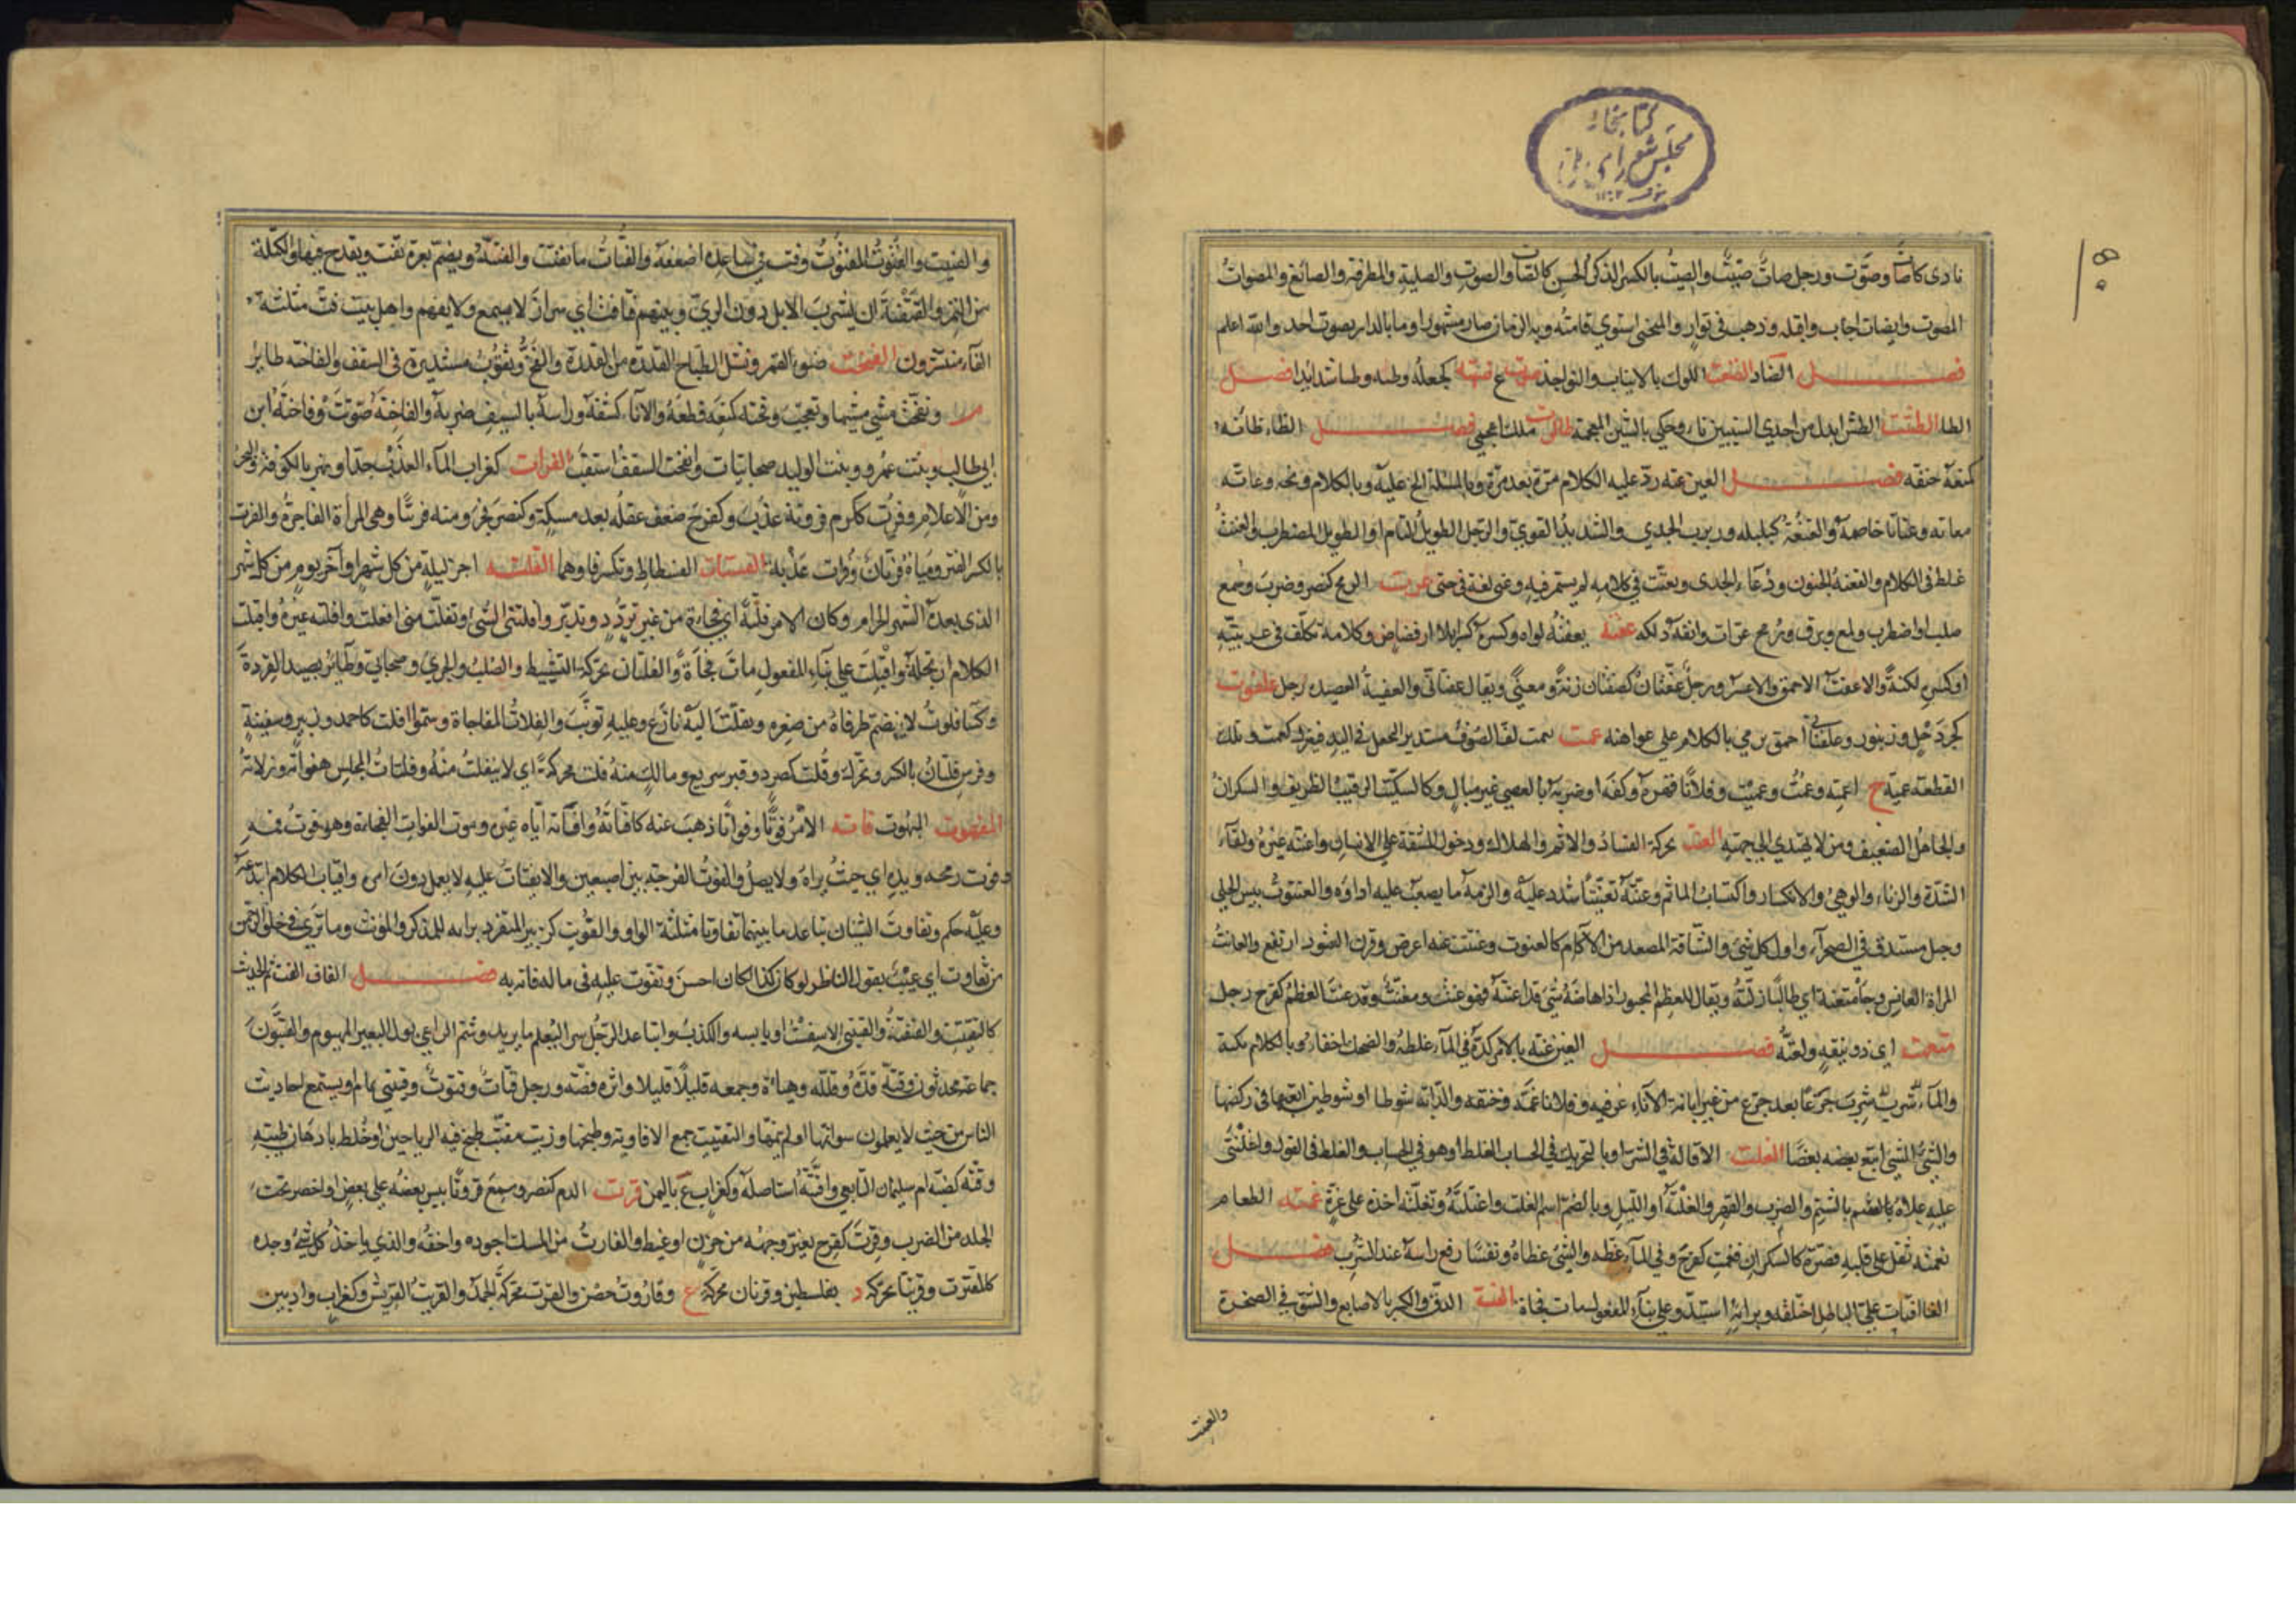 كتابخانه
مجلس شورای ملی
نادى كاصات وصوّت ورجل صاتٌ صيّتٌ والصيتُ بالكسر الذكر الحسن كالصات والصوت والصيتة والمطرقة والصائغ والمصواتُ
المصوت وانصات اجاب واقبل وذهب فى توارٍ والمنحنى استوي قامتُه وبه الزمان صار مشهورا وما بالدار مصوات احد والله اعلم
فصل الضاد الضغت اللوك بالانياب والنواجذ ع ضهته كجعله وطئه وطأ شديدا فصل
الطا الطست الطس ابدل من احدي السينين تاء وحكي بالشين المعجمة طالوت ملك اعجمي فصل الظاء ظأته
كمنعه خنقه فصل العين عته ردّ عليه الكلام مرّة بعد مرّة وبالمسئلة الح عليه وبالكلام وبخه وعاته
معاته وعتاتا خاصمه والعتعُتُ كبلبله وربرب الجدي والشديد القوي والرجل الطويل التام او الطويل المضطرب والعتتُ
غلظ فى الكلام والعتعتة الجنون ودعاء الجدى وتعتّت في كلامه لم يستمر فيه وعتى لغة فى حتى عرت الرمح كنصر وضرب وسمع
صلب او اضطرب ولمع وبرق ورمح عرّات وانفه دلكه عفته يعفتُه لواه وكسره كسرا بلا ارفضاض وكلامه تكلف فى عربيته
او كسر لكنةً والاعفت الاحمق والاعسر ورجل عفتان كصفتان زنةً ومعنًى ويقال عفتانى والعفيتة العصيده رجل علفوت
كجردحل وزنبور وعلفتانى احمق يرمي بالكلام على عواهنه عمت يعمت لف الصوف مستدير ليجعل فى اليد فيغزل كعمت وتلك
القطعة عميتة ج اعمتة وعمت وعميت وفلانًا قهره وكفه او ضربه بالعصى غير مبالٍ وكالسكيت الرقيب الظريف والسكران
والجاهل الضعيف ومن لا يهتدى الى جهته العنت محركة الفساد والاثم والهلاك ودخول المشقة على الانسان واعنته غيره ولقاء
الشدّة والزناء والوهي والانكسار واكتساب الماثم وعنّته تعنيتًا شدد عليه والزمه ما يصعب عليه اداؤه والعنتوت يبيس الخلى
وجبل مستدق فى الصحراء واول كل شئ والشاقة المصعد من الآكام كالعنوت وعنتت عنه اعرض وقرن العتود ارتفع والعانت
المراة العانس وجاء متعنتا اي طالبًا زلته ويقال للعظم المجبور اذا هاضه شئ قد اعنته فهو عنت ومعنت وقد عنت العظم كفرح رجل
متعهت اي ذو نيقة وتعته فصل الغين غته بالامر كدّه وفى الماء غطه والضحك اخفاه وبالكلام بكته
والماء شرب جرعًا بعد جرع من غير ابانة الاناء عن فيه وفلانا غمّه وخنقه والدابة شوطا او شوطين اتعبها فى ركضها
والشئ الشئ اتبع بعضه بعضًا الغلت الاقالة فى الشراء وبالتحريك فى الحساب الغلط او هو فى الحساب والغلط فى القول واغلنتى
عليه علاه بالشتم والضرب والقهر والغلتة اول الليل وبالضم اسم الغلت واغتلته وتغلته اخذه على غرّة غمته الطعام
يغمته ثقل على قلبه فصيره كالسكران فغمت كفرح وفي الماء غطه والشئ غطاه ونفسًا رفع راسه عند الشرب فصل
الفا افتات على الباطل اختلقه وبرايه استبدّ وعلى بناء المفعول مات فجاة الفتة الدق والكسر بالاصابع والشق في الصخرة
والفتيت
والفتيت والفتوت المفتوت وفت فى ساعده اضعفه والفتات ما تفتت والفتة ويضم بعرة تفت ويقدح فيها والكتلة
من التمر والفتفتة ان يشرب الابل دون الري وبينهم فتافت اي سرار لا يسمع ولا يفهم واهل بيت فت مثلثة
الفاء منتشرون الفخت ضوء القمر ونشل الطباخ الفدرة من القدر والفخ وثقوب مستديرة فى السقف والفاختة طائر
م وتفخت مشى مشيها وتعجب وفخته كمنعه قطعه والاناء كشفه وراسه بالسيف ضربه والفاختة صوتت وفاختة ابن
ابى طالب وبنت عمرو وبنت الوليد صحابيات وانفخت السقف انثقب الفرات كغراب الماء العذب جدا ونهر بالكوفة والبحر
ومن الاعلام وفرت ككرم فروتة عذب وكفرح ضعف عقله بعد مسكة وكنصر فجر ومنه فرتنا وهى المراة الفاجرة والفرت
بالكسر الفتر ومياه فرتان وفرات عذبة الفستات الفسطاط وتكسر فاوهما الفلتة اخر ليلة من كل شهر او آخر يوم من كل شهر
الذى بعده الشهر الحرام وكان الامر فلتةً اي فجاءة من غير تردّد وتدبّر وافلتنى الشئ وتفلت منى انفلت وافلته غيره وافتلت
الكلام ارتجله وافتلت على بناء المفعول مات فجاةً والفلتان محركة النشيط والصلب والجرئ وصحابي وطائر يصيد القردة
وكساء فلوت لا ينضم طرفاه من صغره وتفلت اليه نازع وعليه توثب والفلات المفاجاة وسمّوا افلت كاحمد وزبير وسفينة
وفرس فلتان بالكسر ويحرك وفلت كصرد وقبر سريع وما لك منه فلت محركة اي لا ينفلت منه وفلتات المجلس هفواته وزلاته
المفهوت المبهوت فاته الامر فوتًا وفواتًا ذهب عنه كافتاته وافاته اياه غيره وموت الفوات الفجاءة وهو فوت فمه
وفوت رمحه ويده اي حيث يراه ولا يصل والفوت الفرجة بين اصبعين والافتيات عليه لا يعمل دون امره وافتات الكلام ابتدعه
وعليه حكم وتفاوت الشيئان تباعد ما بينهما تفاوتا مثلثة الواو والفويت كزبير المتفرد برايه للمذكر والمونث وما ترى فى خلق الرحمن
من تفاوت اي عيب يقول الناظر لو كان كذا لكان احسن وتفوت عليه فى ماله فاته به فصل القاف القت نم الحديث
كالتقتيت والقتقتة والقتيتى الاسفست او يابسه والكذب واتباعد الرجل سرا ليعلم ما يريد وشم الراعي بول البعير المهيوم والقتوت
جماعة محدثون وقتّه قدّه وقلله وهيأه وجمعه قليلًا قليلا واثره قصّه ورجل قتات وقتوت وقتيتى نمام او يستمع احاديث
الناس من حيث لا يعلمون سوا نمها او لم ينمها والتقتيت جمع الافاويه وطبخها وزيت مقتت طبخ فيه الرياحين او خلط بادهان طيبة
وقتّة كضبّة ام سليمان التابعي واقتته استاصله وكغراب ع باليمن قرت الدم كنصر وسمع قروتًا يبس بعضه على بعض او اخضر تحت
الجلد من الضرب وقرت كفرح تغير وجهه من حزن او غيظ والقارت من المسك اجوده واخفه والذي ياخذ كل شئ وجده
كالمقترت وقرتيا محركة د بفلسطين وقرتان محركة ع وقاروت حصن والقرت محركة الجمد والقريت القريس وكغراب واد بين